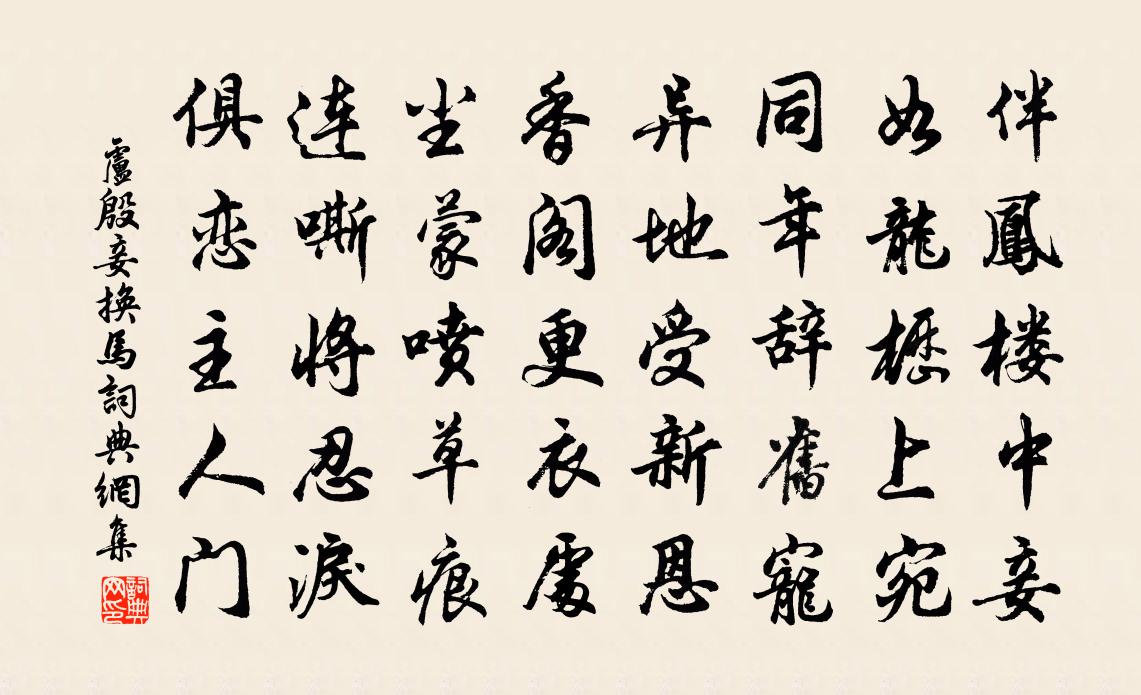 伴鳳楼中妾
如龍櫪上宛
同年辞舊寵
异地受新恩
香阁更衣處
尘蒙噴草痕
連嘶将忍淚
俱恋主人门
盧殷妾換馬詞典網集
詞典网印